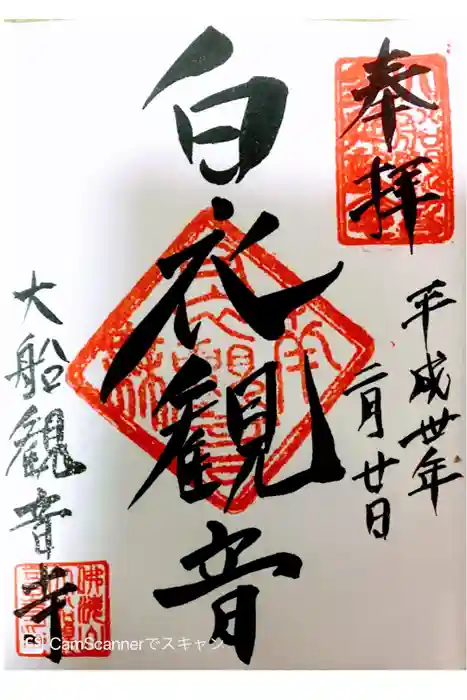 奉拝
平成丗年
二月廿日
白衣観音
大船観音寺
佛海山
CamScannerでスキャン